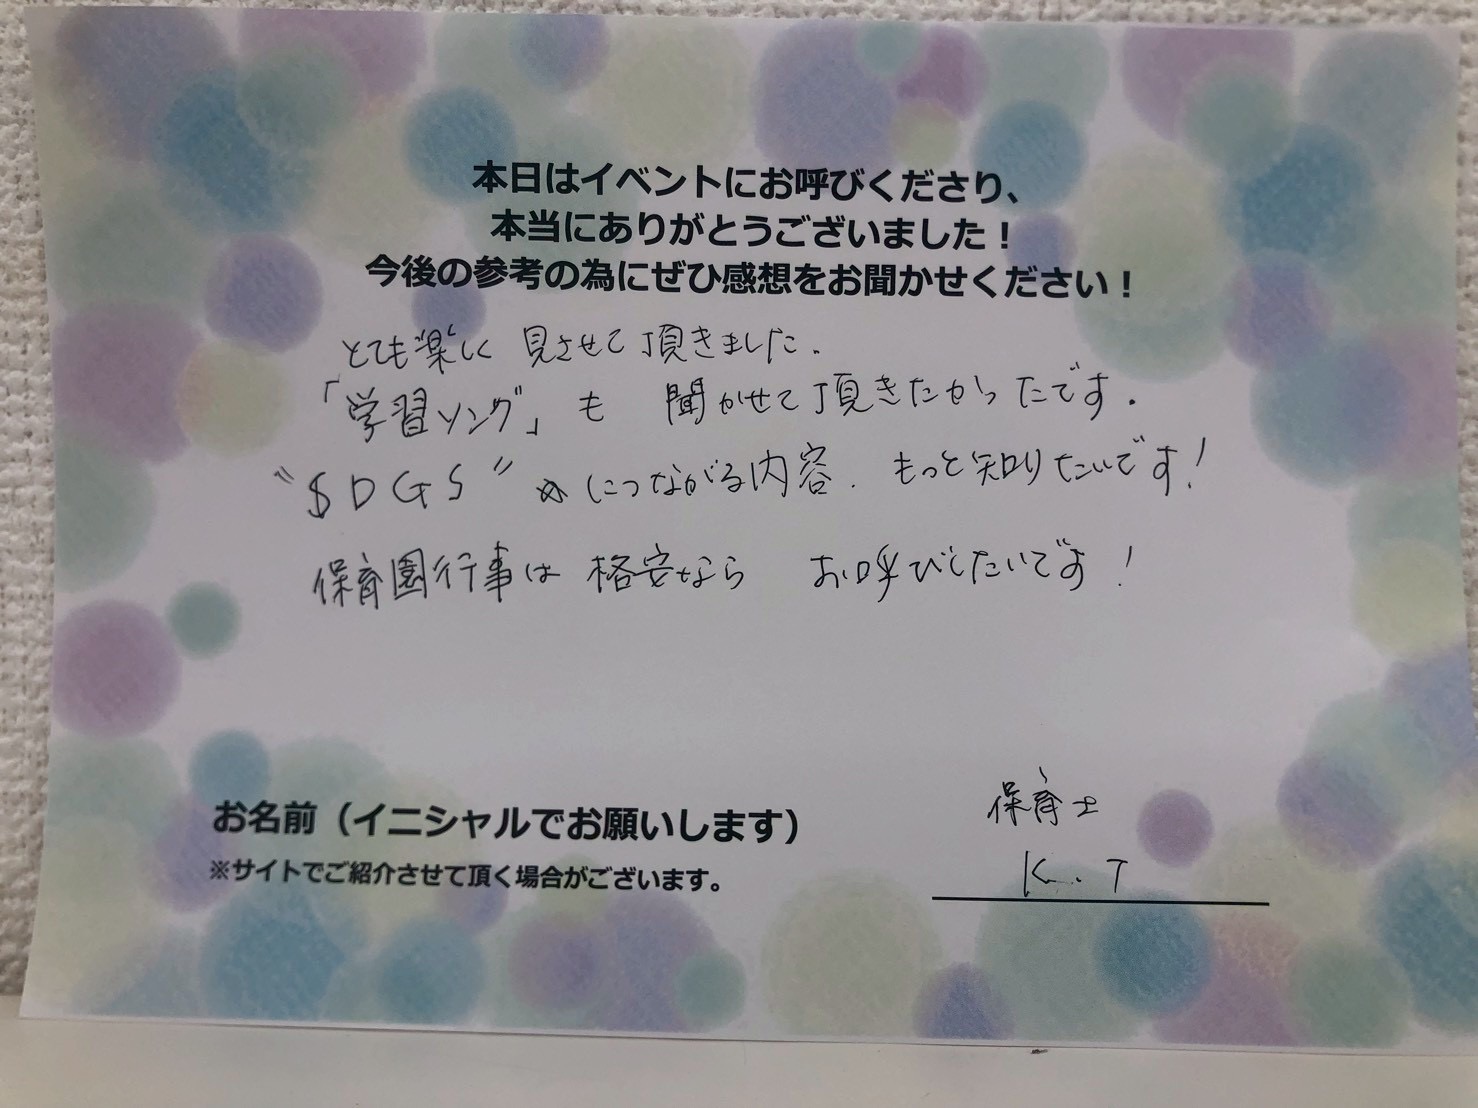 本日はイベントにお呼びくださり、
本当にありがとうございました！
今後の参考の為にぜひ感想をお聞かせください！
とても楽しく 見させて頂きました.
「学習ソング」も 聞かせて頂きたかったです.
"SDGS" につながる内容. もっと知りたいです！
保育園行事は 格安なら お呼びしたいです！
お名前（イニシャルでお願いします）
※サイトでご紹介させて頂く場合がございます。
保育士
K.T